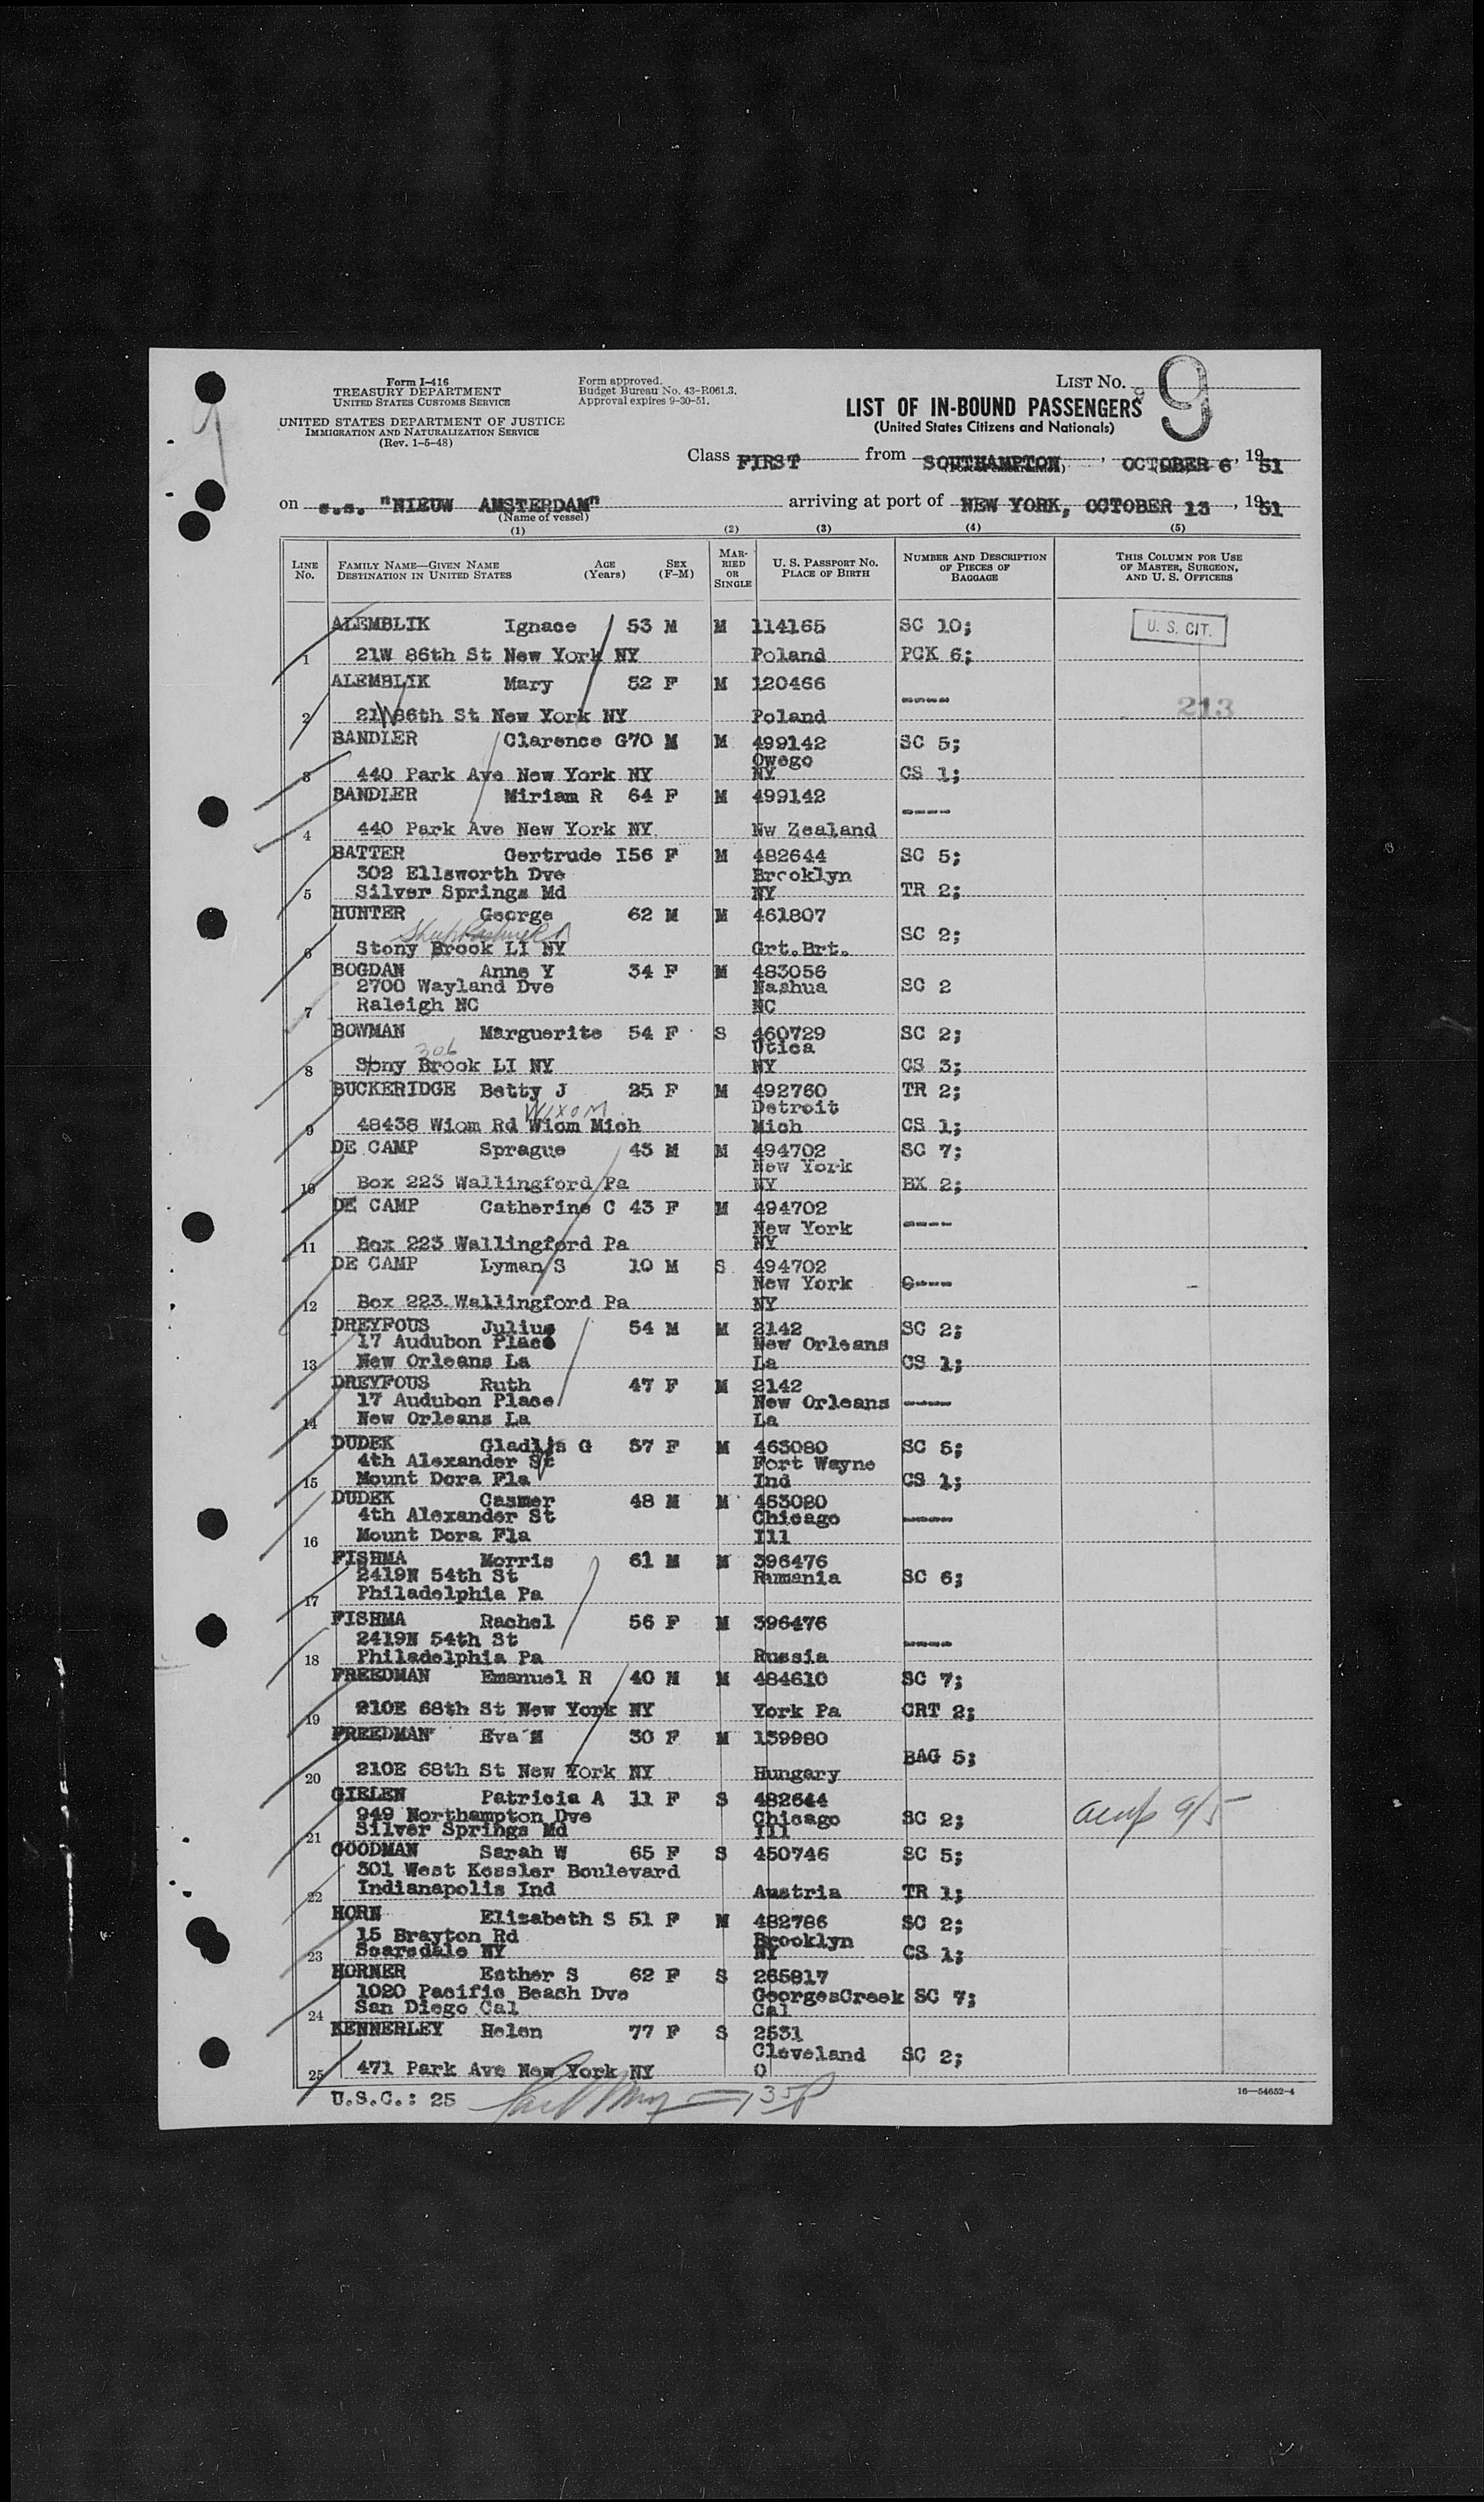 Form I-416
TREASURY DEPARTMENT
UNITED STATES CUSTOMS SERVICE
UNITED STATES DEPARTMENT OF JUSTICE
IMMIGRATION AND NATURALIZATION SERVICE
(Rev. 1-5-48)
Form approved.
Budget Bureau No. 43-R061.3.
Approval expires 9-30-51.
LIST No. 9
9
LIST OF IN-BOUND PASSENGERS
(United States Citizens and Nationals)
Class FIRST from SOUTHAMPTON, OCTOBER 6, 1951
on s.s. "NIEUW AMSTERDAM" arriving at port of NEW YORK, OCTOBER 13, 1951
(Name of vessel)
(1) (2) (3) (4) (5)
LINE No. FAMILY NAME—GIVEN NAME DESTINATION IN UNITED STATES AGE (Years) SEX (F-M) MARRIED OR SINGLE U. S. PASSPORT No. PLACE OF BIRTH NUMBER AND DESCRIPTION OF PIECES OF BAGGAGE THIS COLUMN FOR USE OF MASTER, SURGEON, AND U. S. OFFICERS
ALEMBLIK Ignace 53 M M 114165 SC 10; U. S. CIT.
1 21W 86th St New York NY Poland PCK 6;
ALEMBLIK Mary 52 F M 120466 ----- 213
2 21W 86th St New York NY Poland
BANDLER Clarence G 70 M M 499142 SC 5;
Owego
3 440 Park Ave New York NY NY CS 1;
BANDLER Miriam R 64 F M 499142 -----
4 440 Park Ave New York NY Nw Zealand
BATTER Gertrude I 56 F M 482644 SC 5;
302 Ellsworth Dve Brooklyn
5 Silver Springs Md NY TR 2;
HUNTER George 62 M M 461807 SC 2;
6 Stony Brook LI NY Grt.Brt.
BOGDAN Anne Y 34 F M 483056
2700 Wayland Dve Nashua SC 2
7 Raleigh NC NC
BOWMAN Marguerite 54 F S 460729 SC 2;
306 Utica
8 Stony Brook LI NY NY CS 3;
BUCKERIDGE Betty J 25 F M 492760 TR 2;
WIXOM Detroit
9 48438 Wiom Rd Wiom Mich Mich CS 1;
DE CAMP Sprague 43 M M 494702 SC 7;
New York
10 Box 223 Wallingford Pa NY BX 2;
DE CAMP Catherine C 43 F M 494702
New York -----
11 Box 223 Wallingford Pa NY
DE CAMP Lyman S 10 M S 494702
New York -----
12 Box 223 Wallingford Pa NY
DREYFOUS Julius 54 M M 2142 SC 2;
17 Audubon Place New Orleans
13 New Orleans La La CS 1;
DREYFOUS Ruth 47 F M 2142
17 Audubon Place New Orleans -----
14 New Orleans La La
DUDEK Gladys G 37 F M 463080 SC 5;
4th Alexander St Fort Wayne
15 Mount Dora Fla Ind CS 1;
DUDEK Casmer 48 M M 463080
4th Alexander St Chicago -----
16 Mount Dora Fla Ill
FISHMA Morris 61 M M 396476
2419N 54th St Rumania SC 6;
17 Philadelphia Pa
FISHMA Rachel 56 F M 396476
2419N 54th St -----
18 Philadelphia Pa Russia
FREEDMAN Emanuel R 40 M M 484610 SC 7;
19 210E 68th St New York NY York Pa CRT 2;
FREEDMAN Eva M 30 F M 139980
BAG 5;
20 210E 68th St New York NY Hungary
GIELEN Patricia A 11 F S 482644
949 Northampton Dve Chicago SC 2; 9/5
21 Silver Springs Md Ill
GOODMAN Sarah W 65 F S 450746 SC 5;
301 West Kessler Boulevard
22 Indianapolis Ind Austria TR 1;
HORN Elizabeth S 51 F M 482786 SC 2;
15 Brayton Rd Brooklyn
23 Scarsdale NY NY CS 1;
HORNER Esther S 62 F S 265817
1020 Pacific Beach Dve GeorgesCreek SC 7;
24 San Diego Cal Cal
KENNERLEY Helen 77 F S 2531
Cleveland SC 2;
25 471 Park Ave New York NY O
U.S.C.: 25
16—54652-4